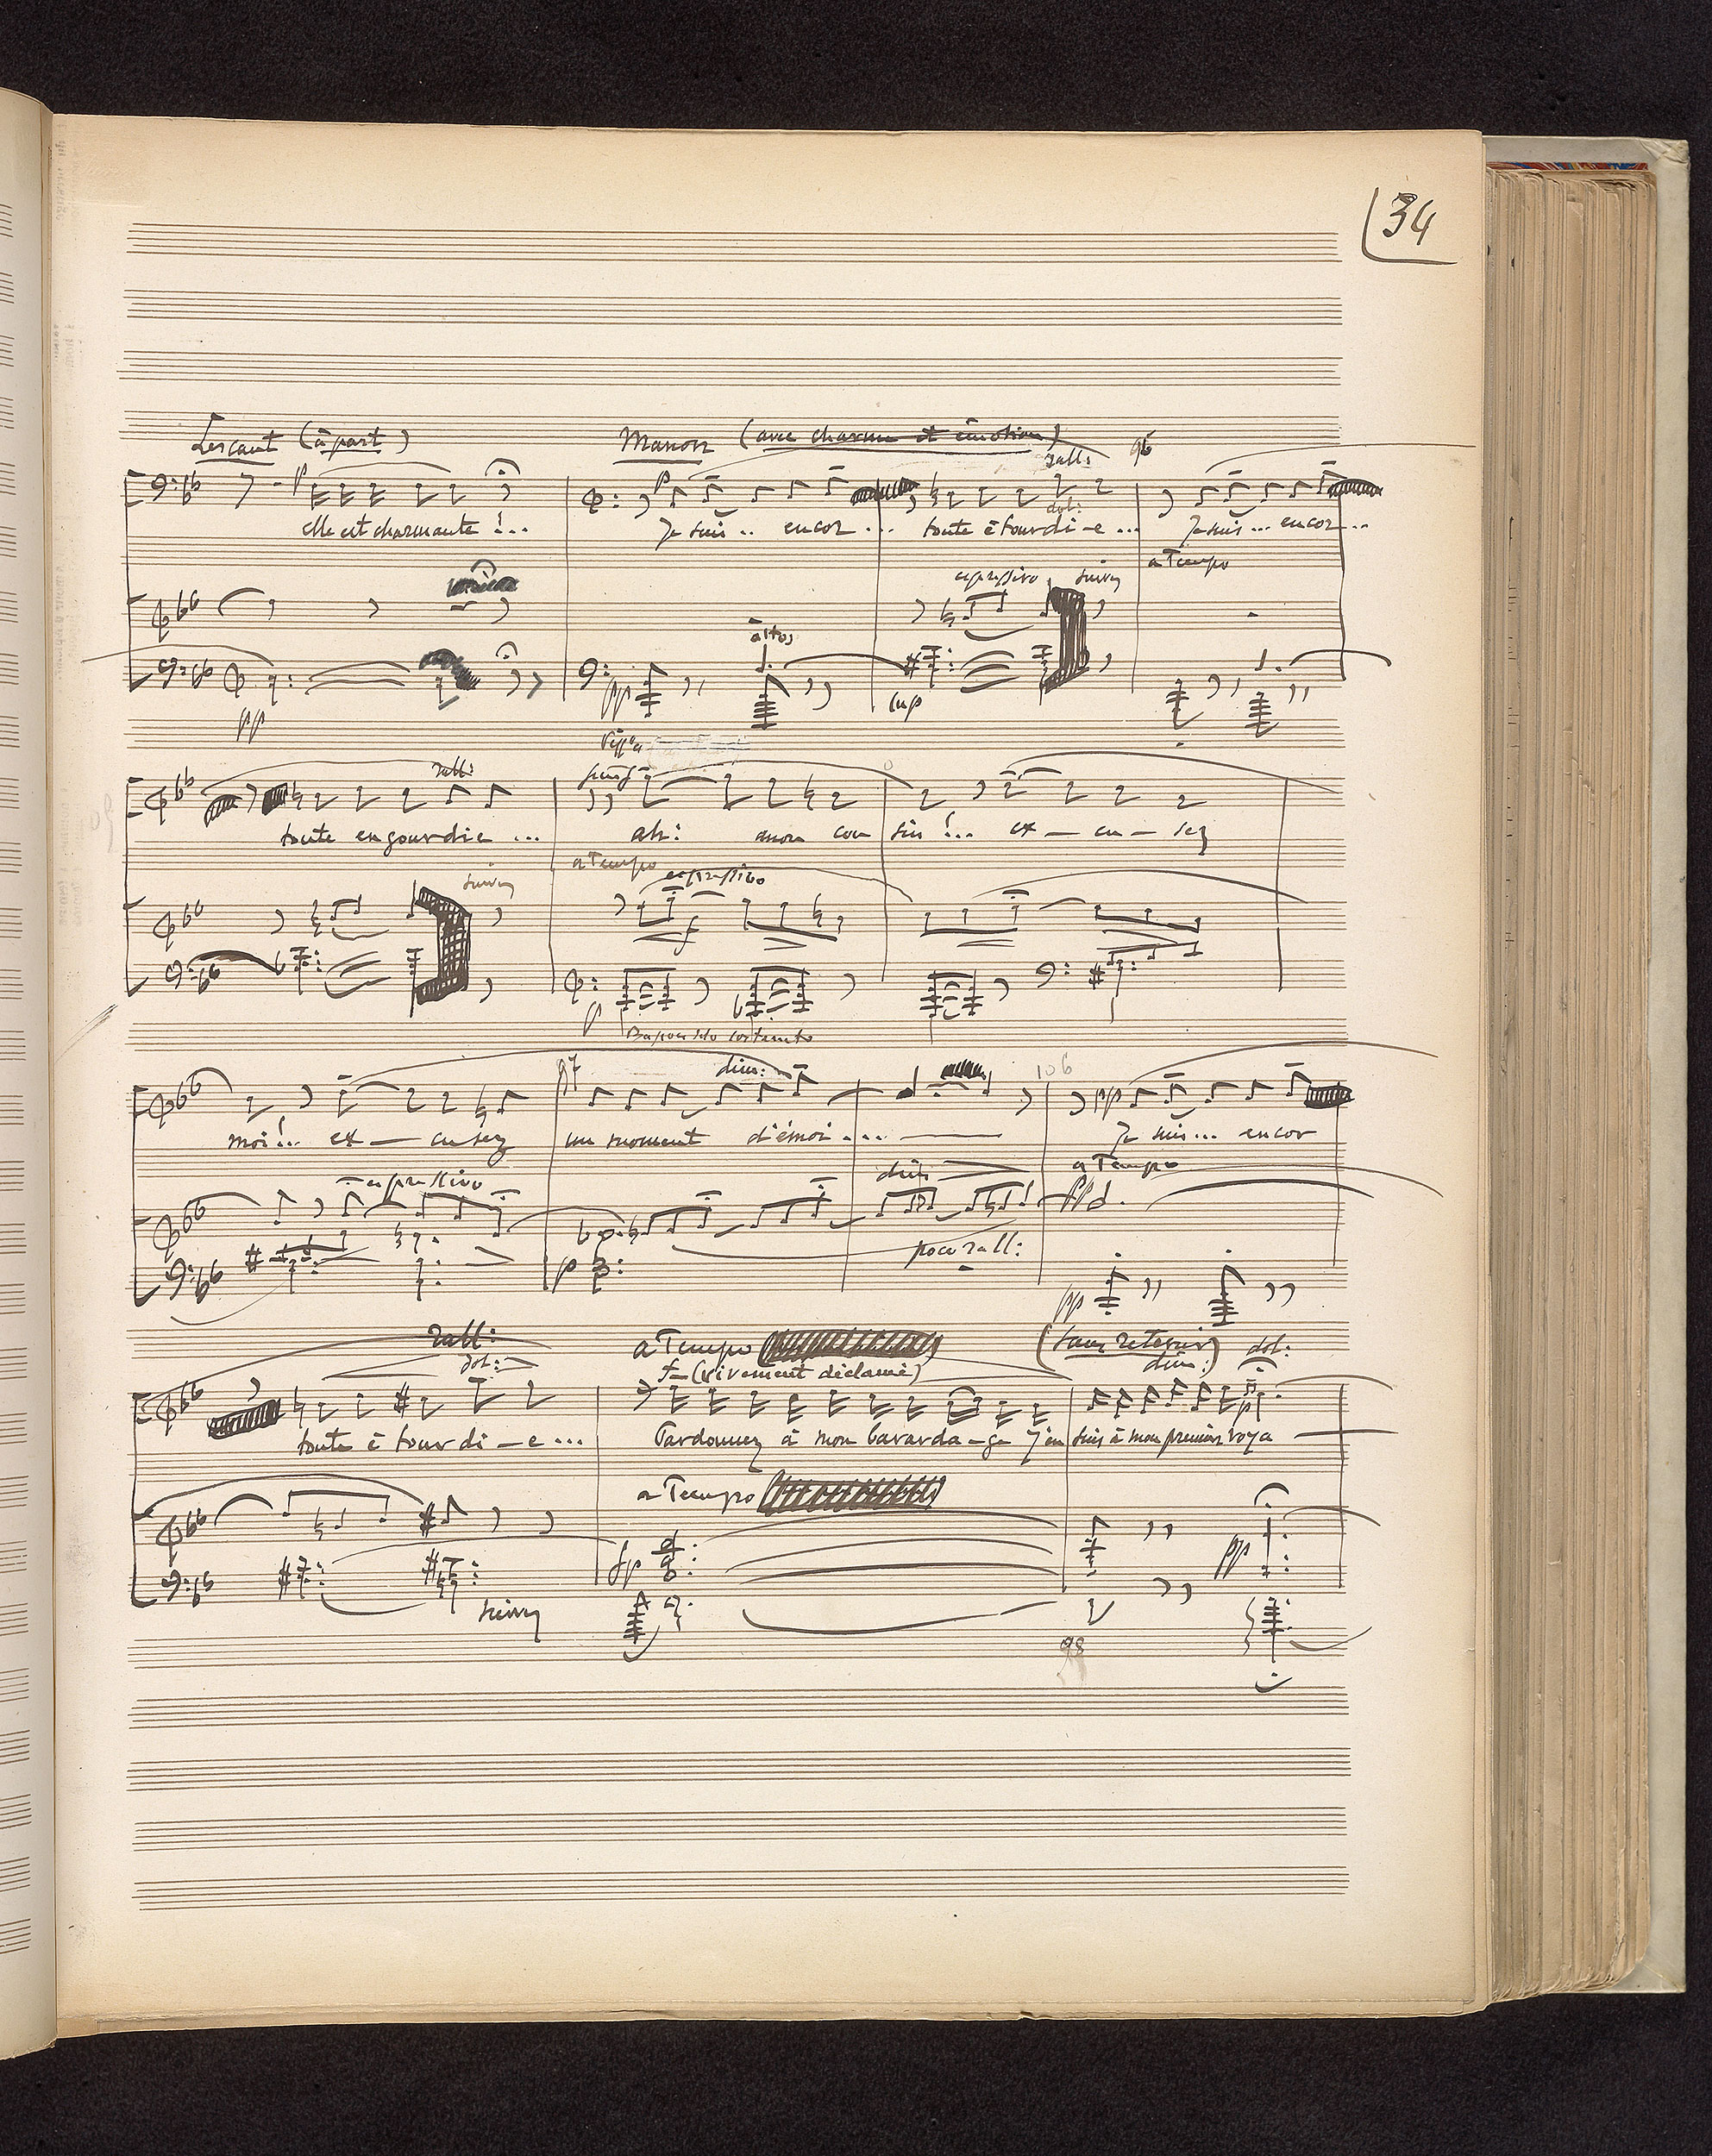 34
Lescaut (à part) Manon (avec charme et émotion) 96
rall:
p p
dol:
elle est charmante !... Je suis .. encor ... toute étourdi-e ... Je suis ... encor ...
a Tempo
espressivo suivez
altos
pp pp
rall:
toute engourdie ... ah! mon cou sin !... ex — cu — sez
a Tempo
suivez espressivo
f
p
Basson solo
97 dim: 106
pp
moi !.. ex — cusez un moment d'émoi .... — Je suis ... encor
espressivo dim a Tempo
pp
poco rall:
p
pp
rall: a Tempo (sans retenir) dol:
dol: f (vivement déclamé) dim:
p
toute étourdi-e ... Pardonnez à mon bavarda-ge j'en suis à mon premier voya —
a Tempo
fp pp
suivez
98